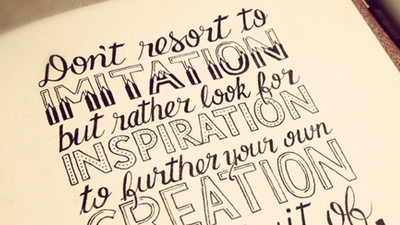 Don't resort to
IMITATION
but rather look for
INSPIRATION
to further your own
CREATION
of.